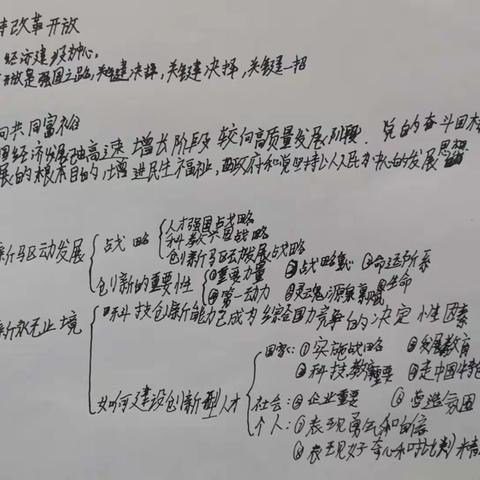 持改革开放
经济建设为中心,
开放是强国之路,关键建决择,关键建决择,关键一招
向共同富裕
国经济发展由高速 增长阶段 较向高质量发展阶段. 党的奋斗目标
展的根本目的,增进民生福祉,政府和党坚持以人民为中心的发展思想
新驱动发展
战略
人才强国战略
科教兴国战略
创新驱动发展战略
创新的重要性
①重要力量 ②战略 ③命运所系
④第一动力 ⑤灵魂源泉 生命
新永无止境
科技创新能力已成为综合国力竞争的决定性因素
如何建设创新型人才
国家: ①实施战略 ②发展教育
③科技 重要 ④走中国特色
社会: ① 企业重要 ② 营造氛围
个人: ①表现勇气和自信
②表现好奇心和 批判 精